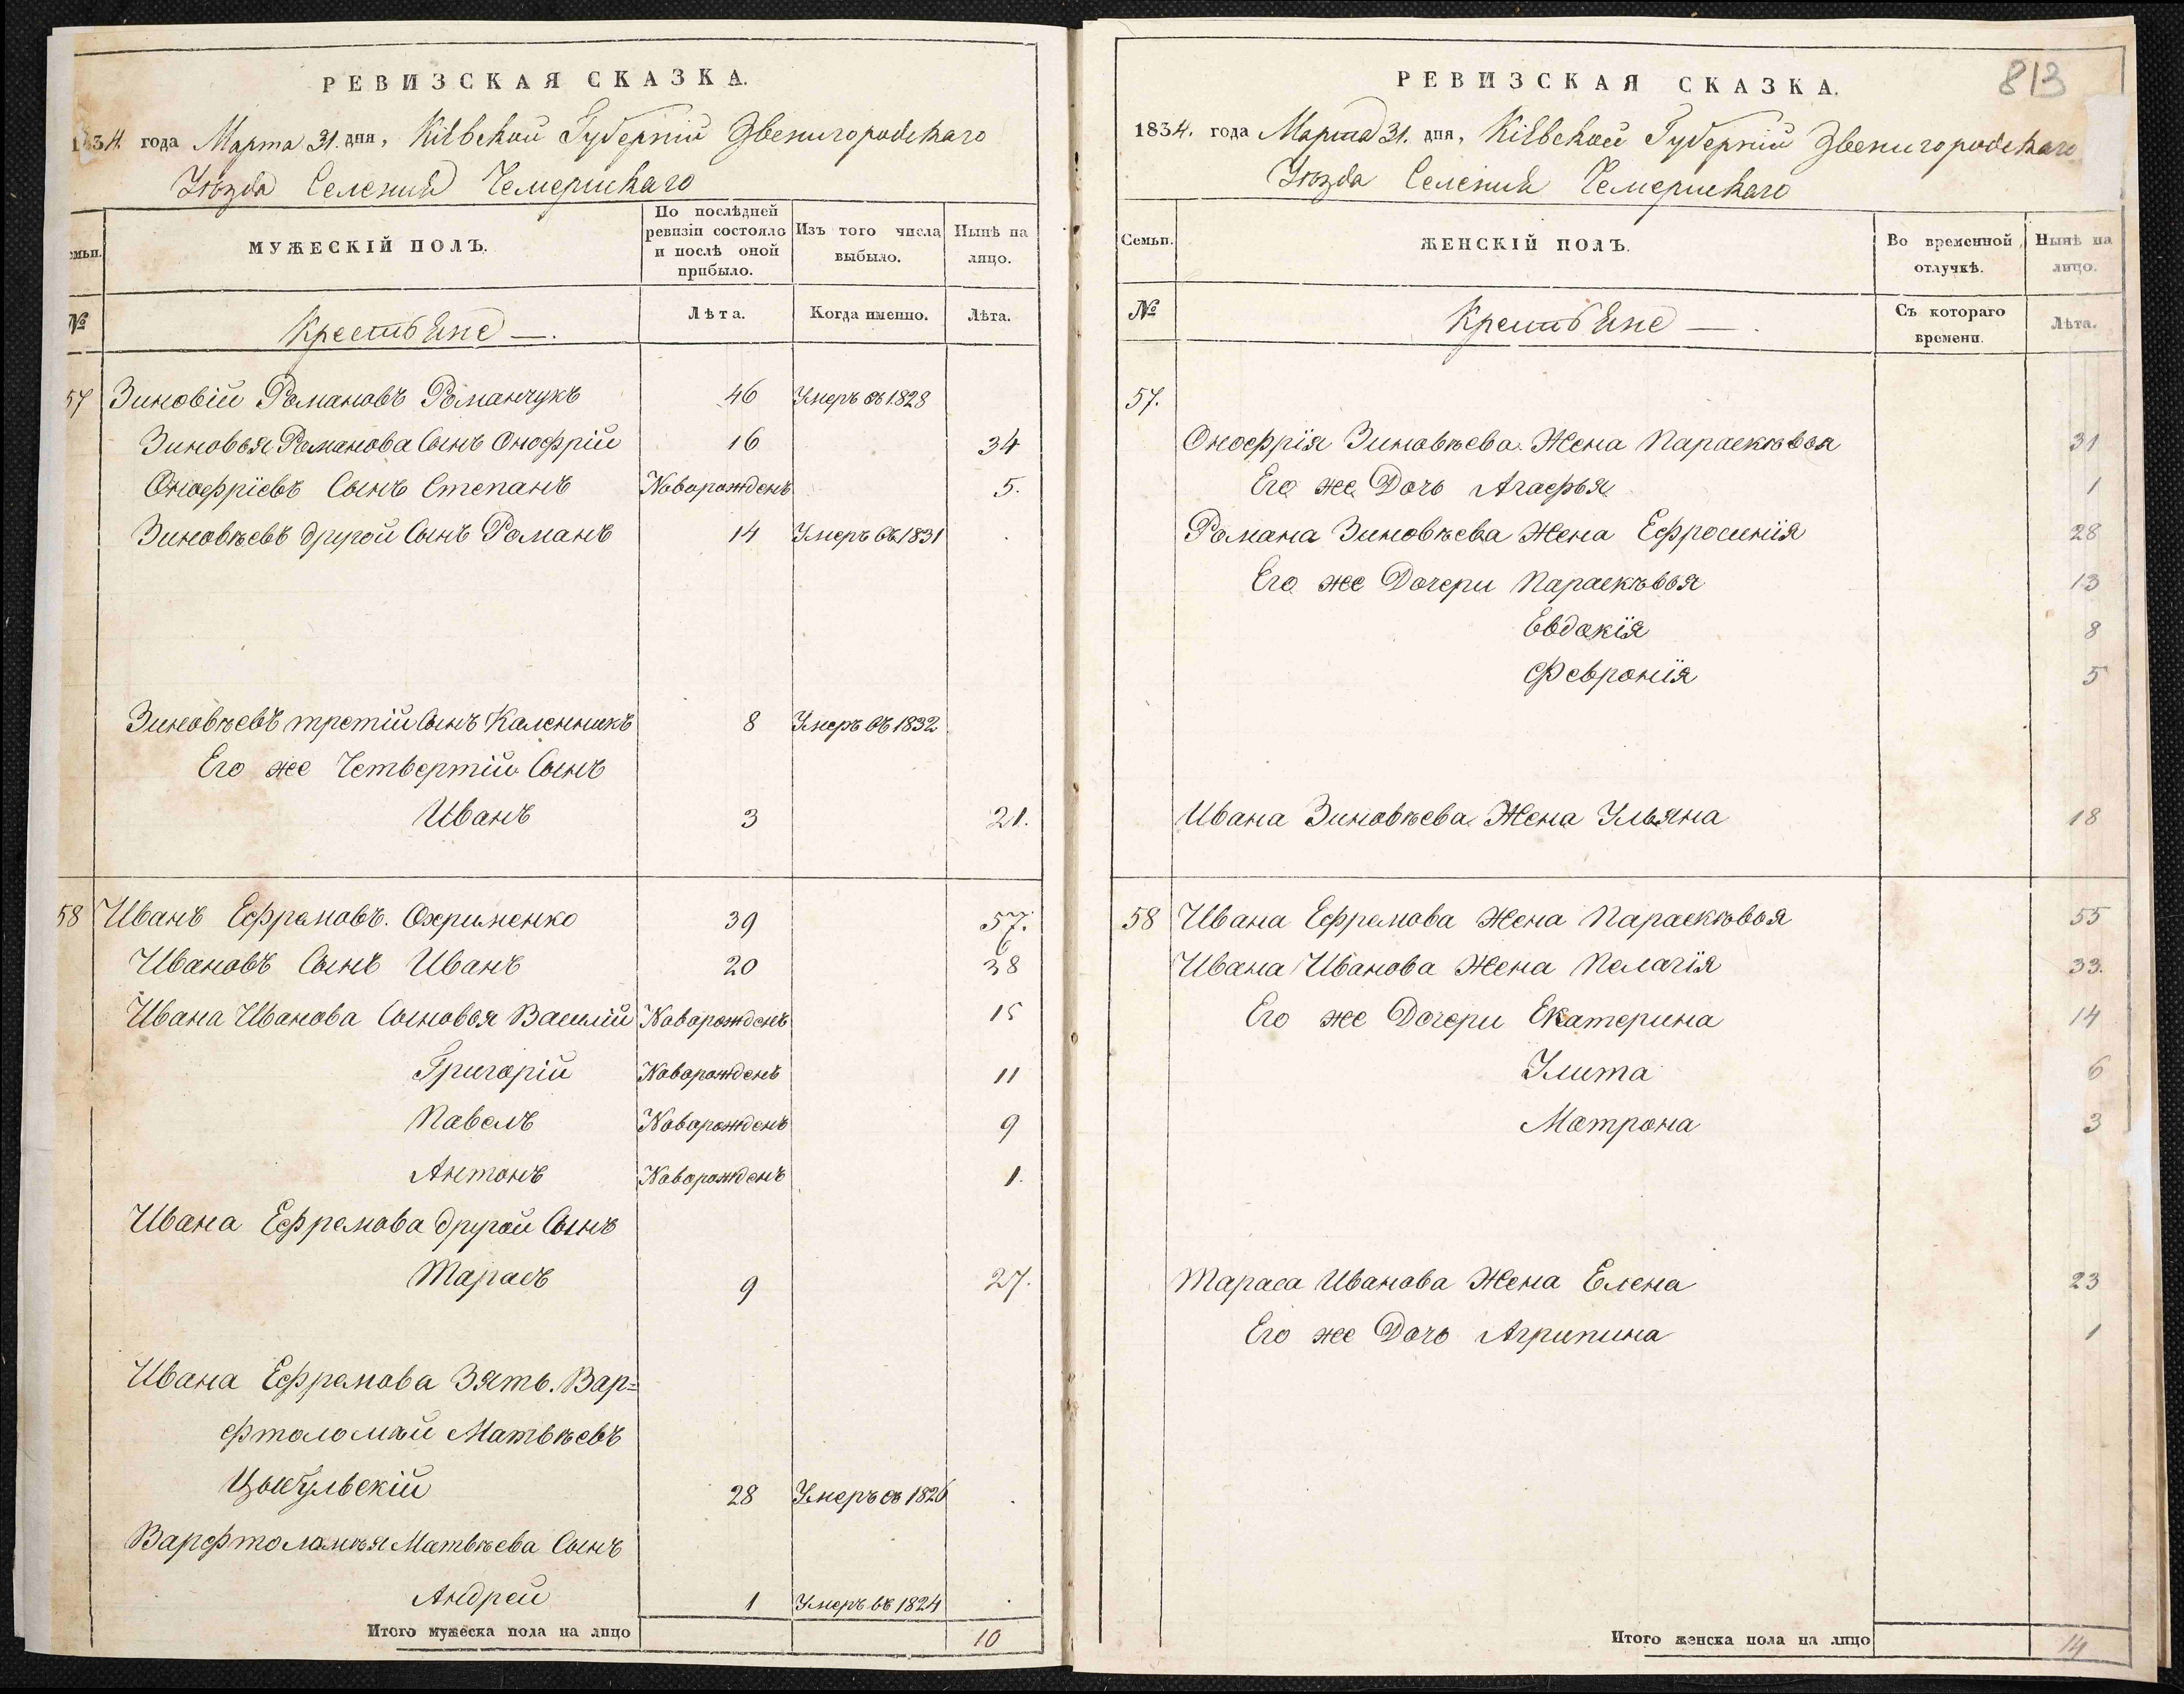 РЕВИЗСКАЯ СКАЗКА.
1834. года Марта 31. дня, Кіевской Губерніи Звенигородскаго
Уѣзда Селенія Чемерискаго
МУЖЕСКІЙ ПОЛЪ.
По послѣдней ревизіи состояло и послѣ оной прибыло.
Изъ того числа выбыло.
Нынѣ на лицо.
№
Крестьяне —.
Лѣта.
Когда именно.
Лѣта.
57 Зиновій Романовъ Романчукъ 46 Умеръ въ 1828
Зиновья Романова Сынъ Онофрій 16 34
Онофріевъ Сынъ Степанъ Новорожденъ 5.
Зиновѣевъ другой Сынъ Романъ 14 Умеръ въ 1831 .
Зиновѣевъ третій Сынъ Каленникъ 8 Умеръ въ 1832
Его же Четвертій Сынъ
Иванъ 3 21.
58 Иванъ Ефремовъ. Охрименко 39 57.
Ивановъ Сынъ Иванъ 20 38
Ивана Иванова Сыновья Василій Новорожденъ 15
Григорій Новорожденъ 11
Павелъ Новорожденъ 9
Антонъ Новорожденъ 1.
Ивана Ефремова другой Сынъ
Тарасъ 9 27.
Ивана Ефремова Зять. Вар=
фтоломѣй Матвѣевъ
Цыбульскій 28 Умеръ въ 1826 .
Варфтоломѣя Матвѣева Сынъ
Андрей 1 Умеръ въ 1824 .
Итого мужеска пола на лицо 10
813
РЕВИЗСКАЯ СКАЗКА.
1834. года Марта 31. дня, Кіевской Губерніи Звенигородскаго
Уѣзда Селенія Чемерискаго
Семьи.
ЖЕНСКІЙ ПОЛЪ.
Во временной отлучкѣ.
Нынѣ на лицо.
№
Крестьяне —.
Съ котораго времени.
Лѣта.
57.
Онофрія Зиновѣева Жена Параскѣвья 31
Его же Дочь Агафья 1
Романа Зиновѣева Жена Ефросинія 28
Его же Дочери Параскѣвья 13
Евдокія 8
Февронія 5
Ивана Зиновѣева Жена Ульяна 18
58 Ивана Ефремова Жена Параскѣвья 55
Ивана Иванова Жена Пелагія 33.
Его же Дочери Екатерина 14
Улита 6
Матрона 3
Тараса Иванова Жена Елена 23
Его же Дочь Агрипина 1
Итого женска пола на лицо 14